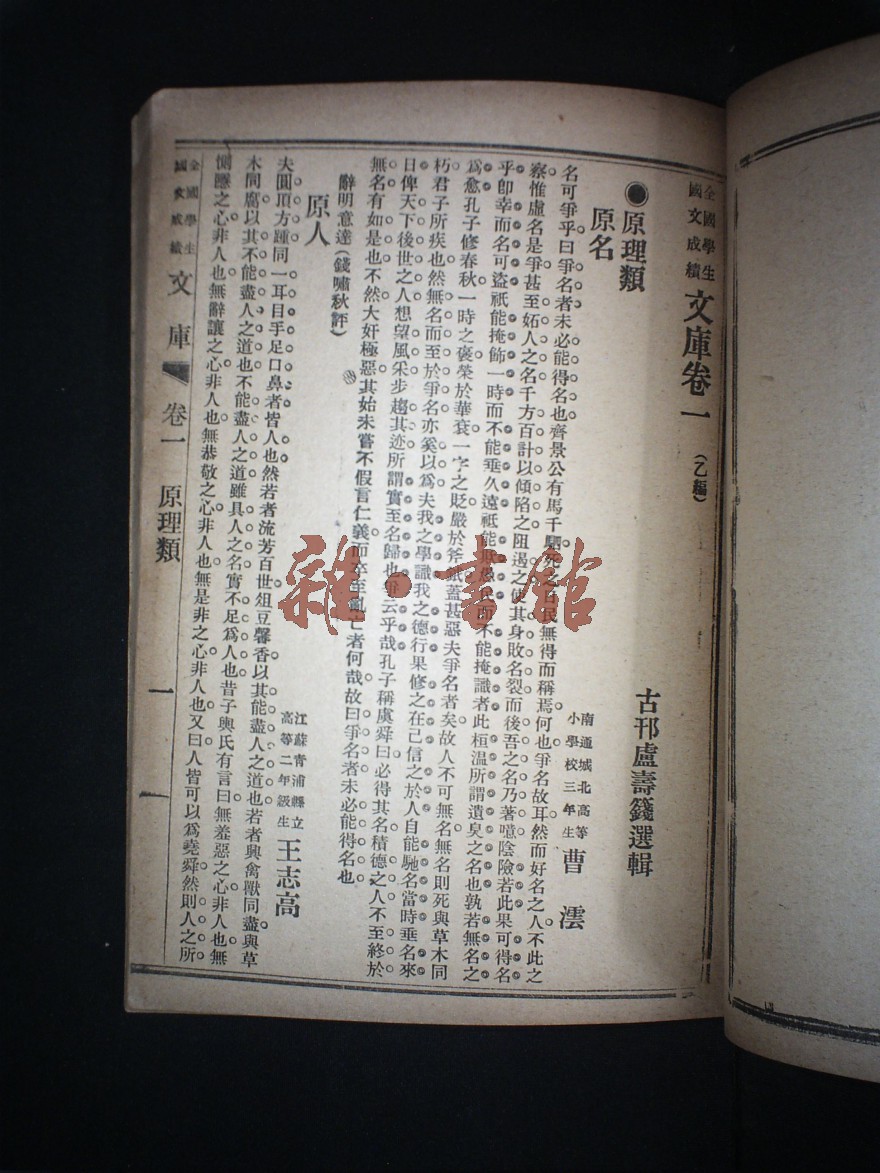 全國學生國文成績 文庫卷一 (乙編)
古邗盧壽籛選輯
●原理類
原名
南通城北高等小學校三年生 曹澐
名可爭乎曰爭名者未必能得名也齊景公有馬千駟死之日民無得而稱焉何也爭名故耳然而好名之人不此之
察惟虛名是爭甚至妬人之名千方百計以傾陷之阻遏之使其身敗名裂而後吾之名乃著噫陰險若此果可得名
乎卽幸而名可盜祇能掩飾一時而不能垂久遠祇能欺愚民而不能掩識者此桓溫所謂遺臭之名也孰若無名之
爲愈孔子修春秋一時之褒榮於華袞一字之貶嚴於斧鉞蓋甚惡夫爭名者矣故人不可無名無名則死與草木同
朽君子所疾也然無名而至於爭名亦奚以爲夫我之學識我之德行果修之在己信之於人自能馳名當時垂名來
日俾天下後世之人想望風采步趨其迹所謂實至名歸也爭云乎哉孔子稱虞舜曰必得其名積德之人不至終於
無名有如是也不然大奸極惡其始未嘗不假言仁義而卒至亂亡者何哉故曰爭名者未必能得名也
辭明意達(錢嘯秋評)
原人
江蘇青浦縣立高等二年級生 王志高
夫圓頂方踵同一耳目手足口鼻者皆人也然若者流芳百世俎豆馨香以其能盡人之道也若者與禽獸同盡與草
木同腐以其不能盡人之道也不能盡人之道雖具人之名實不足爲人也昔子輿氏有言曰無羞惡之心非人也無
惻隱之心非人也無辭讓之心非人也無恭敬之心非人也無是非之心非人也又曰人皆可以爲堯舜然則人之所
全國學生國文成績 文庫 卷一 原理類 一 一
雜·書館